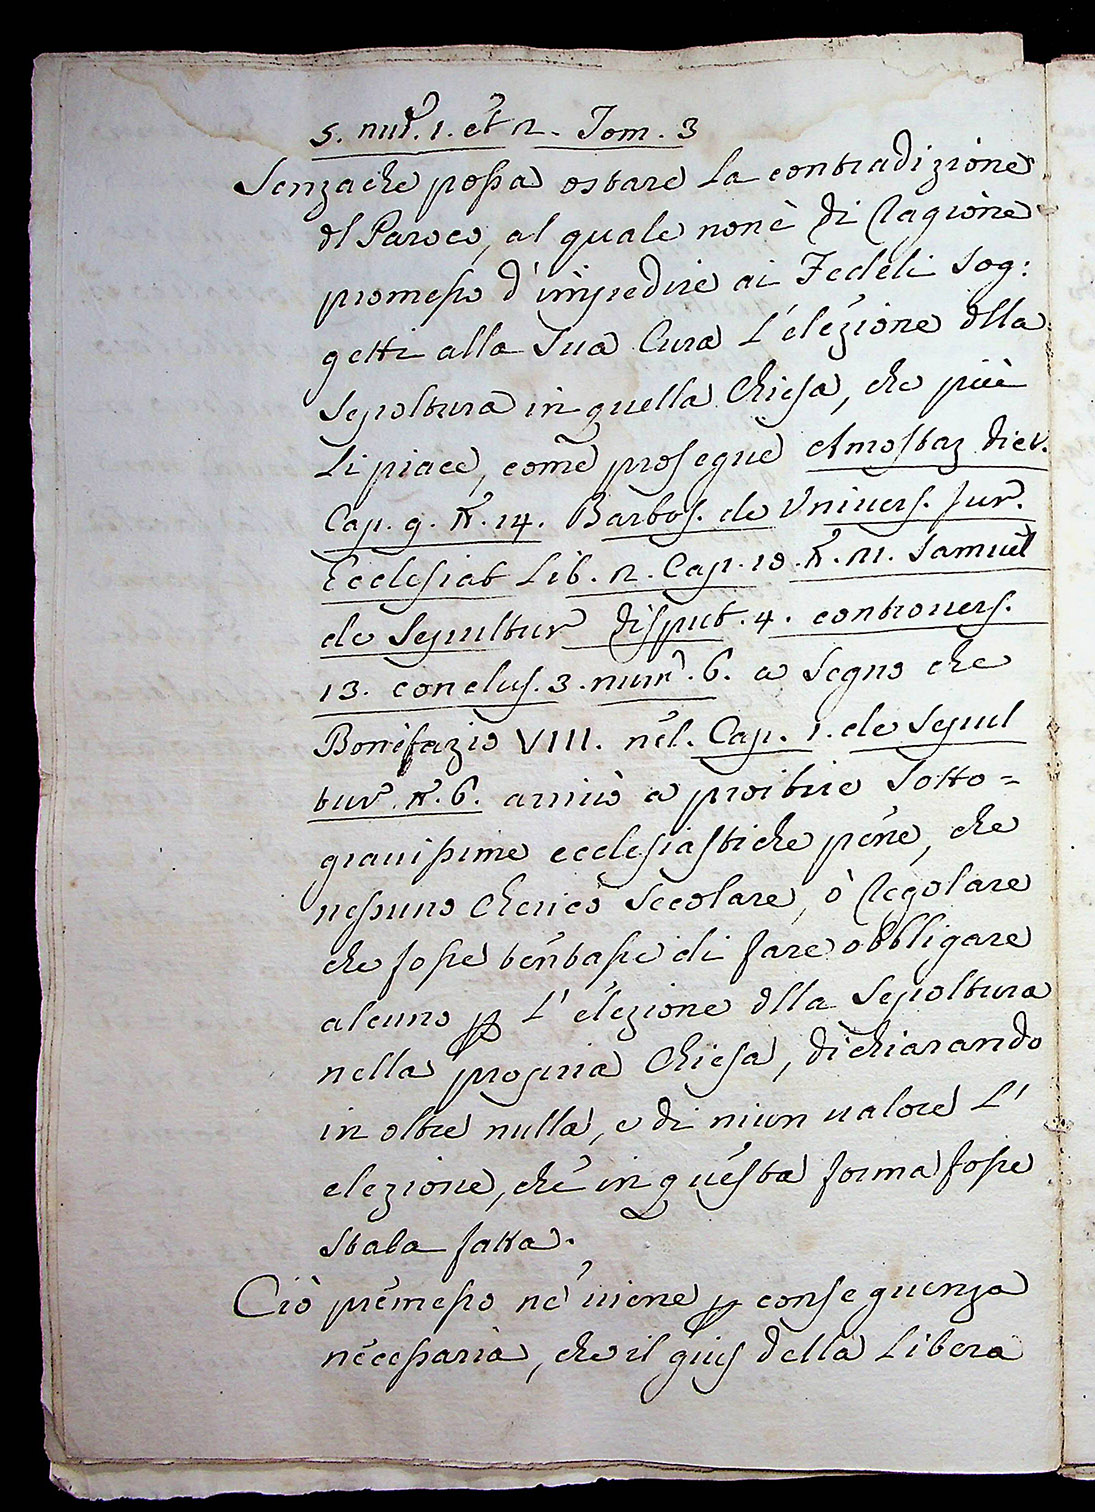 5. nuf. 1. et 2. Tom. 3
Senzache possa ostare la contradizione
dl Paroco, al quale non è di Ragione
promesso d'impedire ai Fedeli Sog:
getti alla Sua Cura L'elezione dlla
Sepoltura in quella Chiesa, che più
Li piace, come prosegue Amostaz dict.
Cap. 9. N. 14. Barbos. de Univers. Jur.
Ecclesiat Lib. 2. Cap. 10. N. 21. Samuel
de Sepultur disput. 4. controvers.
13. conclus. 3. num. 6. a Segno che
Bonifazio VIII. nel. Cap. 1. de Sepul
tur. N. 6. arrivò a proibire Sotto=
gravissime ecclesiastiche pene, che
nessuno Cherico Secolare, ò Regolare
che fosse tentasse di fare obbligare
alcuno p L'elezione dlla Sepoltura
nella propria Chiesa, dichiarando
in oltre nulla, e di niun valore L'
elezione, che in questa forma fosse
stata fatta.
Ciò premesso ne viene p conseguenza
necessaria, che il gius della Libera